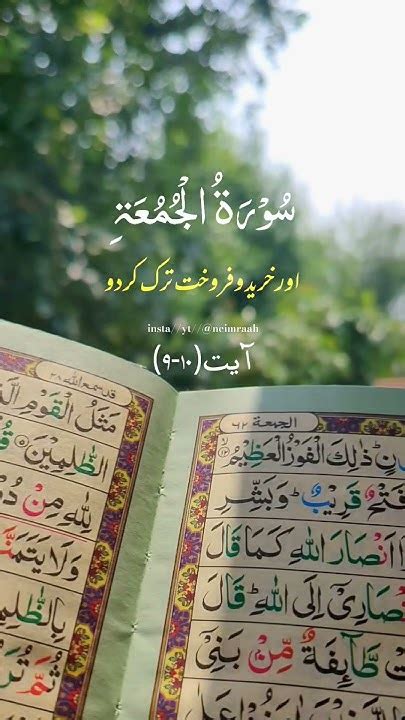 سُوْرَةُ الْجُمُعَةِ
اور خرید و فروخت ترک کر دو
insta//yt//@neimraah
آیت(۹-۱۰)
الجمعة ٦٢
ذٰلِكَ الْفَوْزُ الْعَظِيْمُ
فَتْحٌ قَرِيْبٌ وَبَشِّرِ
اَنْصَارَ اللّٰهِ كَمَا قَالَ
اِلَى اللّٰهِ قَالَ
طَّآئِفَةٌ مِّنْۢ بَنِيْ
قد سمع الله ٢٨
مَثَلُ الْقَوْمِ
الظّٰلِمِيْنَ
لِلّٰهِ مِنْ
وَلَا
ثُمَّ